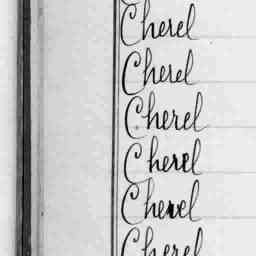 Cherel
Cherel
Cherel
Cherel
Chevel
Cherel